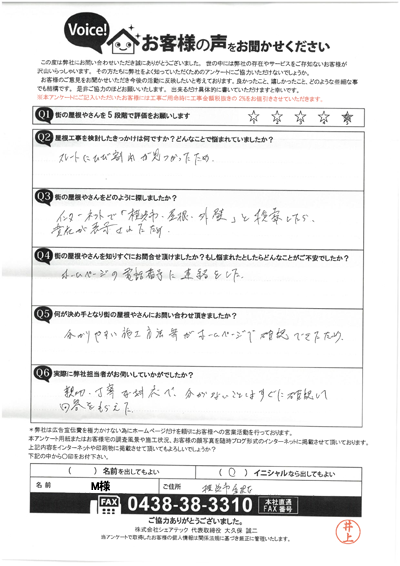 Voice! お客様の声をお聞かせください
この度は弊社にお問い合わせいただき誠にありがとうございました。世の中には弊社の存在やサービスをご存知ないお客様が
沢山いらっしゃいます。その方たちに弊社をよく知っていただくためのアンケートにご協力いただけないでしょうか。
お客様のご意見をお聞かせいただき今後の活動に反映したいと考えております。良かったこと、嬉しかったこと、どのような些細な事
でも結構です。是非ご協力のほどお願いいたします。出来るだけ具体的に書いていただけますと幸いです。
※本アンケートにご記入いただいたお客様には工事ご用命時に工事金額税抜きの2%をお値引きさせていただきます。
Q1 街の屋根やさんを5段階で評価をお願いします ☆ ☆ ☆ ☆ ★
Q2 屋根工事を検討したきっかけは何ですか?どんなことで悩まれていましたか?
スレートにひび割れが見つかったため.
Q3 街の屋根やさんをどのように探しましたか?
インターネットで「・屋根・外壁」と検索したら、
表示されたため.
Q4 街の屋根やさんを知りすぐにお問合せ頂けましたか?もし悩まれたとしたらどんなことがご不安でしたか?
ホームページの電話番号に連絡をした.
Q5 何が決め手となり街の屋根やさんにお問い合わせ頂きましたか?
分かりやすい施工方法等がホームページで確認できたため.
Q6 実際に弊社担当者がお伺いしていかがでしたか?
親切、丁寧な、分からないことはすぐに確認して
回答をもらえた.
*弊社は広告宣伝費を極力かけない為にホームページだけを頼りにお客様への営業活動を行っております。
本アンケート用紙またはお客様宅の調査風景や施工状況、お客様の顔写真を随時ブログ形式のインターネットに掲載させて頂いております。
上記内容をインターネットや印刷物に掲載させて頂いてもよろしいでしょうか?
下記の中から〇印をお付下さい。
( )名前を出してもよい (〇)イニシャルなら出してもよい
名前 M様 ご住所
FAX 0438-38-3310 本社直通 FAX番号
ご協力ありがとうございました。
株式会社シェアテック 代表取締役 大久保 誠二
当アンケートで取得したお客様の個人情報は関係法規に基づき厳正に管理いたします。
井上